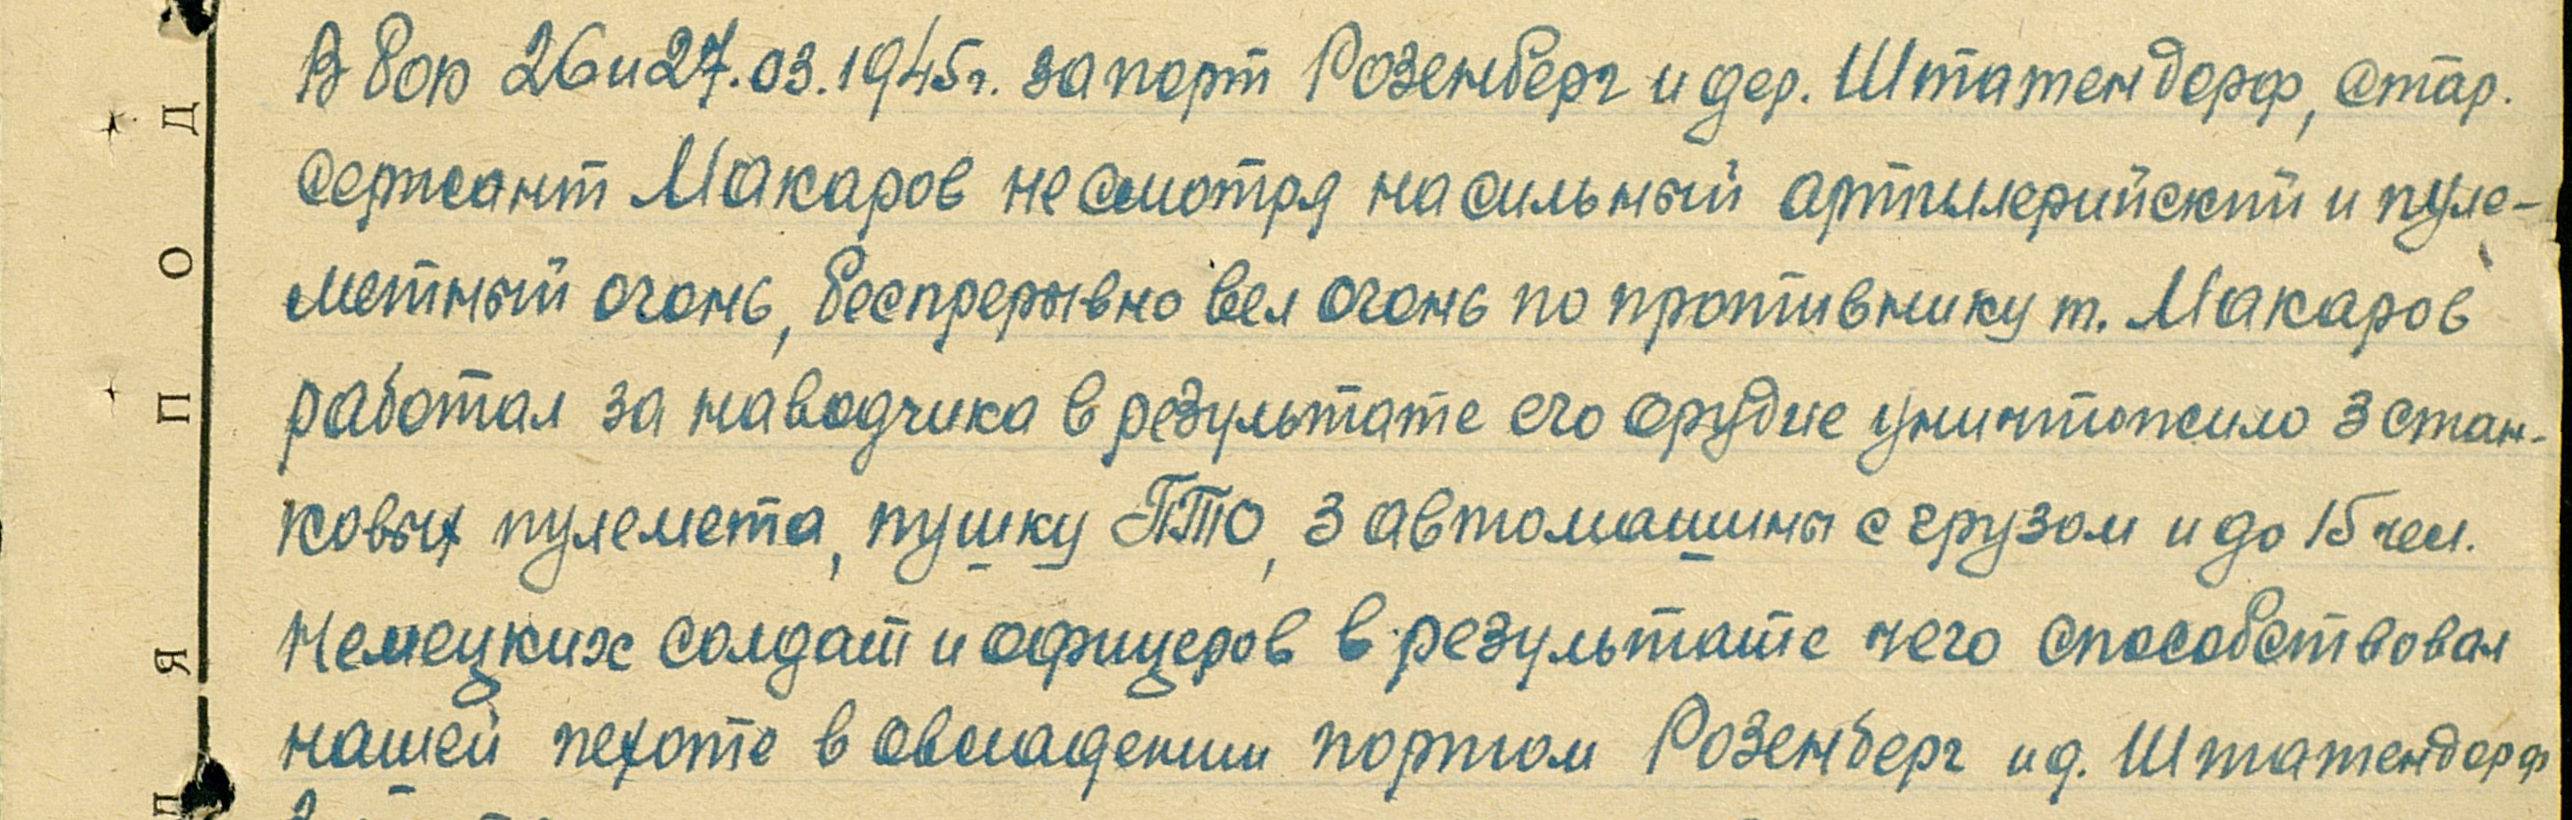 В бою 26 и 27.03.1945г. за порт Розенберг и дер. Штатендорф, стар.
сержант Макаров не смотря на сильный артиллерийский и пуле-
метный огонь, беспрерывно вел огонь по противнику т. Макаров
работал за наводчика в результате его орудие уничтожило 3 стан-
ковых пулемета, пушку ПТО, 3 автомашины с грузом и до 15 чел.
немецких солдат и офицеров в результате чего способствовал
нашей пехоте в овладении портом Розенберг и д. Штатендорф
Д
О
П
Я
Л